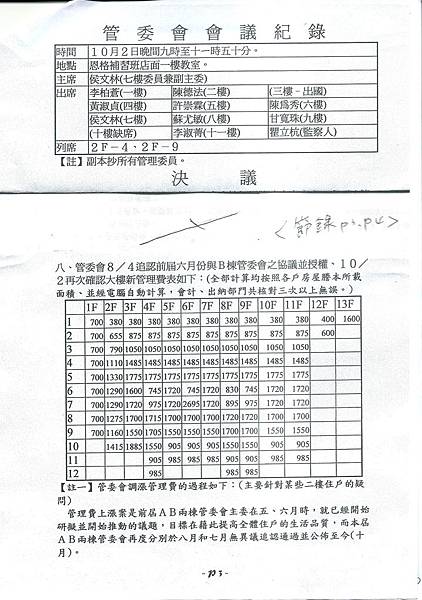 管委會會議紀錄
時間 10月2日晚間九時至十一時五十分。
地點 恩格補習班店面一樓教室。
主席 侯文林(七樓委員兼副主委)
出席 李柏蒼(一樓) 陳德法(二樓) (三樓-出國)
黃淑貞(四樓) 許崇霖(五樓) 陳為秀(六樓)
侯文林(七樓) 蘇尤敏(八樓) 甘寬珠(九樓)
(十樓缺席) 李淑菁(十一樓) 瞿立杭(監察人)
列席 2F-4、2F-9
【註】副本抄所有管理委員。
決 議
<節錄p3.p4>
八、管委會8/4追認前屆六月份與B棟管委會之協議並授權、10/
2再次確認大樓新管理費表如下：(全部計算均按照各戶房屋謄本所載
面積、並經電腦自動計算，會計、出納部門共核對三次以上無誤。)
1F 2F 3F 4F 5F 6F 7F 8F 9F 10F 11F 12F 13F
1 700 380 380 380 380 380 380 380 380 380 380 400 1600
2 700 655 875 875 875 875 875 875 875 875 875 600
3 700 790 1050 1050 1050 1050 1050 1050 1050 1050 1050
4 700 1110 1485 1485 1485 1485 1485 1485 1485 1485 1485
5 700 1330 1775 1775 1775 1775 1775 1775 1775 1775 1775
6 700 1290 1600 745 1720 745 1720 830 745 1720 1720
7 700 1290 1720 975 1720 2695 1720 895 975 1720 1720
8 700 1275 1700 1715 1700 1700 1700 1720 1720 1700 1700
9 700 1160 1550 1705 1550 1550 1550 1700 1700 1550 1550
10 1415 1885 1550 905 905 905 1550 1550 905 905
11 905 985 985 985 905 905 985 985
12 985 985 985
【註一】管委會調漲管理費的過程如下：(主要針對某些二樓住戶的疑
問)
管理費上漲案是前屆AB兩棟管委會主委在五、六月時，就已經開始
研擬並開始推動的議題，目標在藉此提高全體住戶的生活品質，而本屆
AB兩棟管委會再度分別於八月和七月無異議追認通過並公佈至今(十
月)。
-P3-